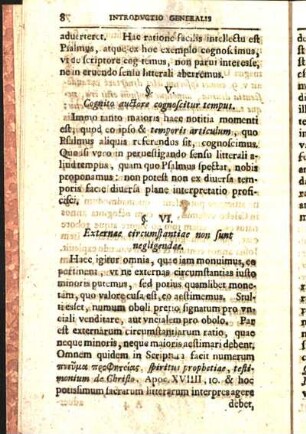 8 INTRODVCTIO GENERALIS
aduerteret. Hac ratione facilis intellectu est
Psalmus, atque ex hoc exemplo cognoscimus,
vt de scriptore cog temus, non parui interesse,
ne in eruendo sensu litterali aberremus.
§.
Cognito auctore cognoscitur tempus.
Immo tanto maioris haec notitia momenti
est, quod eo ipso & temporis articulum, quo
Psalmus aliquis referendus sit, cognoscimus.
Quasi vero in peruestigando sensu litterali
tempus, quam quo Psalmus spectat, nobis
proponamus: non potest non ex diuersa tem-
poris facie diuersa plane interpretatio profi-
cisci.
§. VI.
Externae circumstantiae non sunt
negligendae.
Haec igitur omnia, quae iam monuimus, eo
pertinent, vt ne externas circumstantias iusto
minoris putemus, sed potius quamlibet mone-
tam, quo valore cusa est, eo aestimemus. Stul-
ti esset, numum oboli pretio signatum pro vn-
ciali venditare, aut vncialem pro obolo. Par
est externarum circumstantiarum ratio, quae
neque minoris, neque maioris aestimari debent.
Omnem quidem in Scriptura facit numerum
πνεῦμα προφητείας, spiritus prophetiae, testi-
monium de Christo. Apoc. XVIIII, 10. & hoc
potissimum sacrarum litterarum interpres agere
debet,